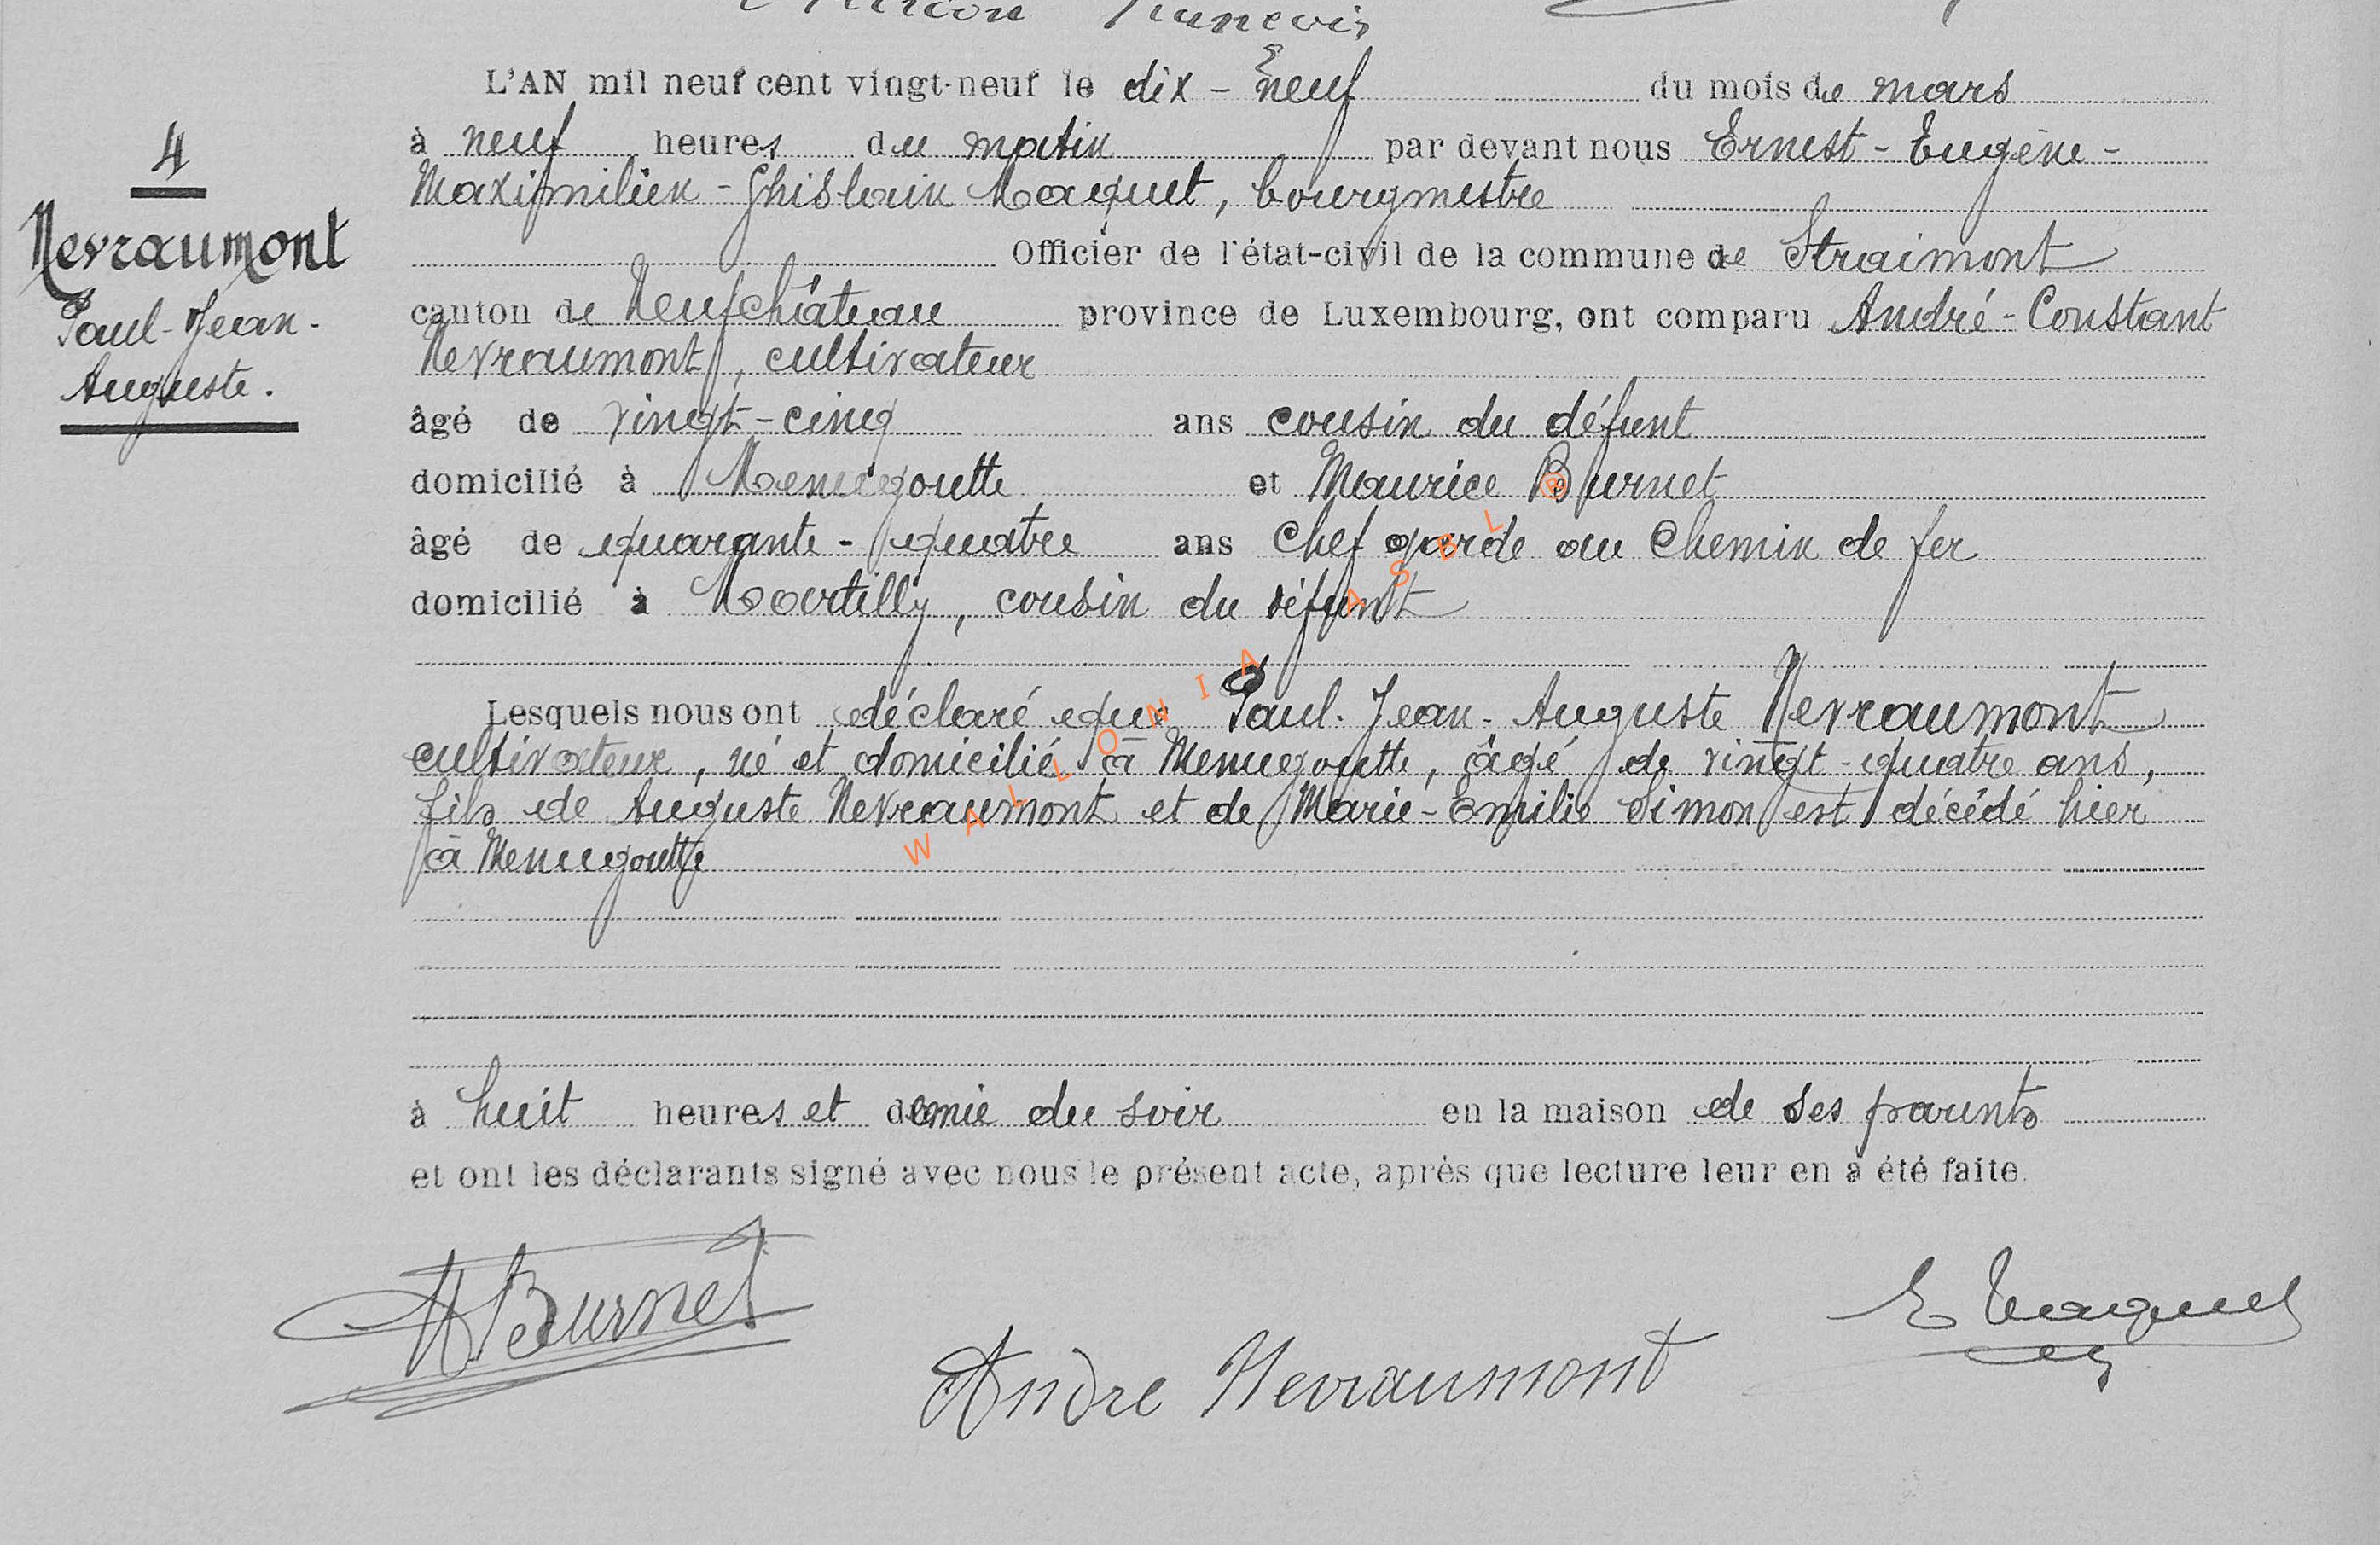 François
L'AN mil neuf cent vingt-neuf le dix - neuf du mois de mars
à neuf heures du matin par devant nous Ernest - Eugène -
Maximilien - Ghislain Maquet, bourgmestre
Officier de l'état-civil de la commune de Straimont
canton de Neufchâteau province de Luxembourg, ont comparu André - Constant
Nevraumont, cultivateur
âgé de vingt-cinq ans cousin du défunt
domicilié à Menugoutte et Maurice Burnet
âgé de quarante - quatre ans Chef garde au Chemin de fer
domicilié à Martilly, cousin du défunt
Lesquels nous ont déclaré que Paul-Jean-Auguste Nevraumont
cultivateur, né et domicilié à Menugoutte, âgé de vingt-quatre ans,
fils de Auguste Nevraumont et de Marie-Emilie Simon est décédé hier
à Menugoutte
à huit heures et demie du soir en la maison de ses parents
et ont les déclarants signé avec nous le présent acte, après que lecture leur en a été faite.
4
Nevraumont
Paul-Jean-
Auguste.
M Burnet
André Nevraumont
E Maquet
WALLONIA ASBL ®